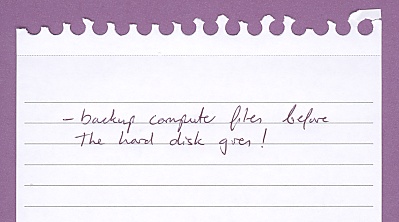 - backup compute files before
the hard disk goes!